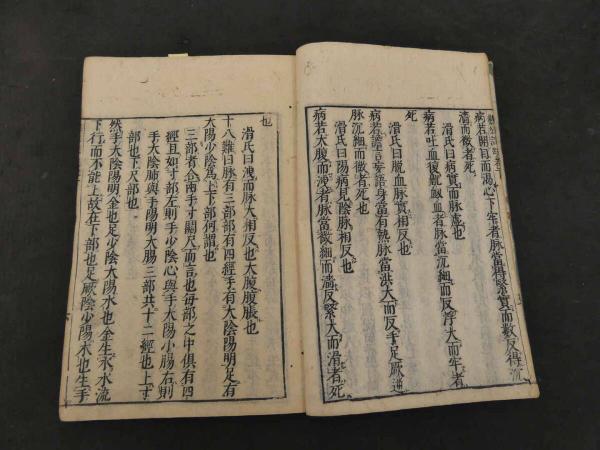 病若開目而渴心下牢者脉當得緊實而數反得沉
濇而微者死
滑氏曰病實而脉虛也
病若吐血復鼽衂血者脉當沉細而反浮大而牢者
死
滑氏曰脱血脉實相反也
病若譫言妄語身當有熱脉當洪大而反手足厥逆
脉沉細而微者死也
滑氏曰陽病見陰脉相反也
病若大腹而洩者脉當微細而濇反緊大而滑者死
也
滑氏曰洩而脉大相反也大腹腹脹也
十八難曰脉有三部部有四經手有太陰陽明足有
太陽少陰爲上下部何謂也
三部者合兩手寸關尺而言也每部之中俱有四
經且如寸部左則手少陰心與手太陽小腸右則
手太陰肺與手陽明大腸三部共十二經也上寸
部也下尺部也
然手太陰陽明金也足少陰太陽水也金生水水流
下行而不能上故在下部也足厥陰少陽木也生手